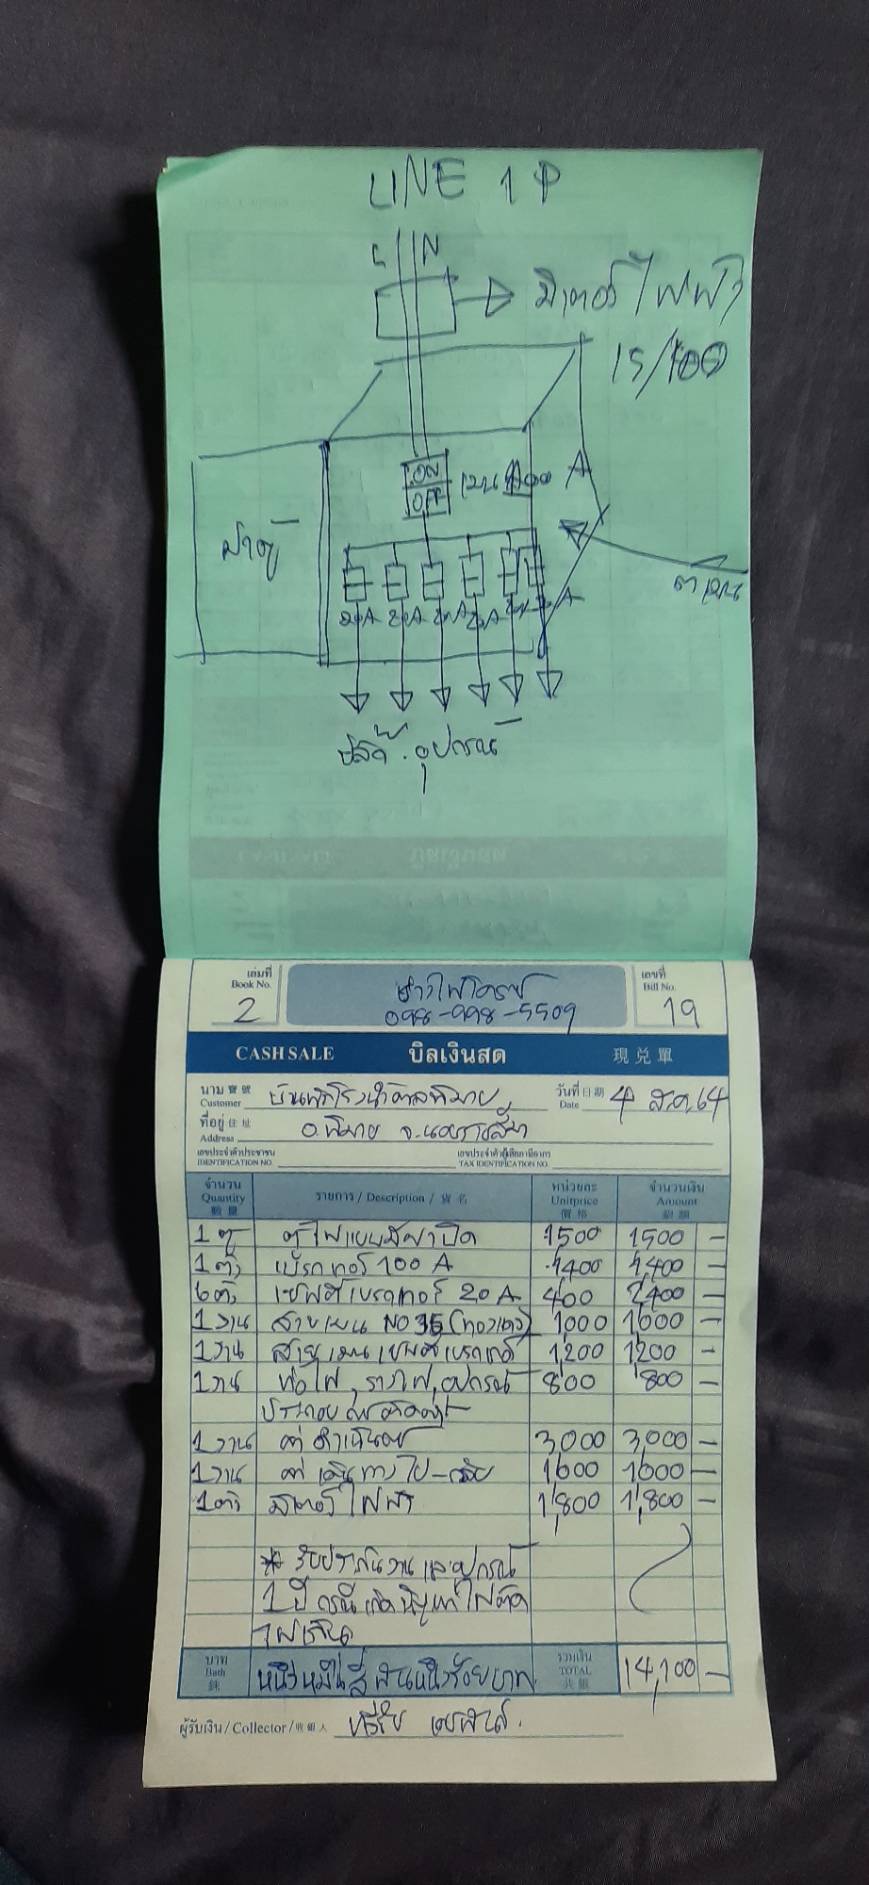 LINE 1 P
L N
มิเตอร์ไฟฟ้า
15/100
ON
OFF
เมน 100 A
ฝาตู้
20A 20A 20A 20A
อุปกรณ์
เล่มที่
Book No.
2
ช่างไฟโคราช
098-998-5509
เลขที่
Bill No.
19
CASH SALE บิลเงินสด 現兑單
นาม 寶號
Customer
วันที่ 日期
Date 4 ส.ค. 64
ที่อยู่ 住址
Address อ.พิมาย จ.นครราชสีมา
เลขประจำตัวประชาชน
IDENTIFICATION NO.
เลขประจำตัวผู้เสียภาษีอากร
TAX IDENTIFICATION NO.
จำนวน
Quantity
數量
รายการ / Description / 貨名
หน่วยละ
Unitprice
價格
จำนวนเงิน
Amount
銀額
1 ตู้ ตู้ไฟแบบมีฝาปิด 1500 1500 –
1 ตัว เบรกเกอร์ 100 A 1400 1400 –
6 ตัว เซฟตี้เบรกเกอร์ 20 A 400 2400 –
1 งาน สายเมน NO 35 (ทองแดง) 1000 1000 –
1 งาน สายเมนเซฟตี้เบรกเกอร์ 1200 1200 –
1 งาน ท่อไฟ, รางไฟ, อุปกรณ์ 800 800 –
ประกอบ
1 งาน ค่าดำเนินการ 3,000 3,000 –
1 งาน ค่าเดินทางไป-กลับ 1000 1000 –
1 ตัว มิเตอร์ไฟฟ้า 1,800 1,800 –
* รับประกันงานและอุปกรณ์
1 ปี กรณีเกิดปัญหาไฟตัด
ไฟเกิน
บาท
Bath
銖
หนึ่งหมื่นสี่พันหนึ่งร้อยบาท
รวมเงิน
TOTAL
共銀
14,100 –
ผู้รับเงิน / Collector / 收銀人